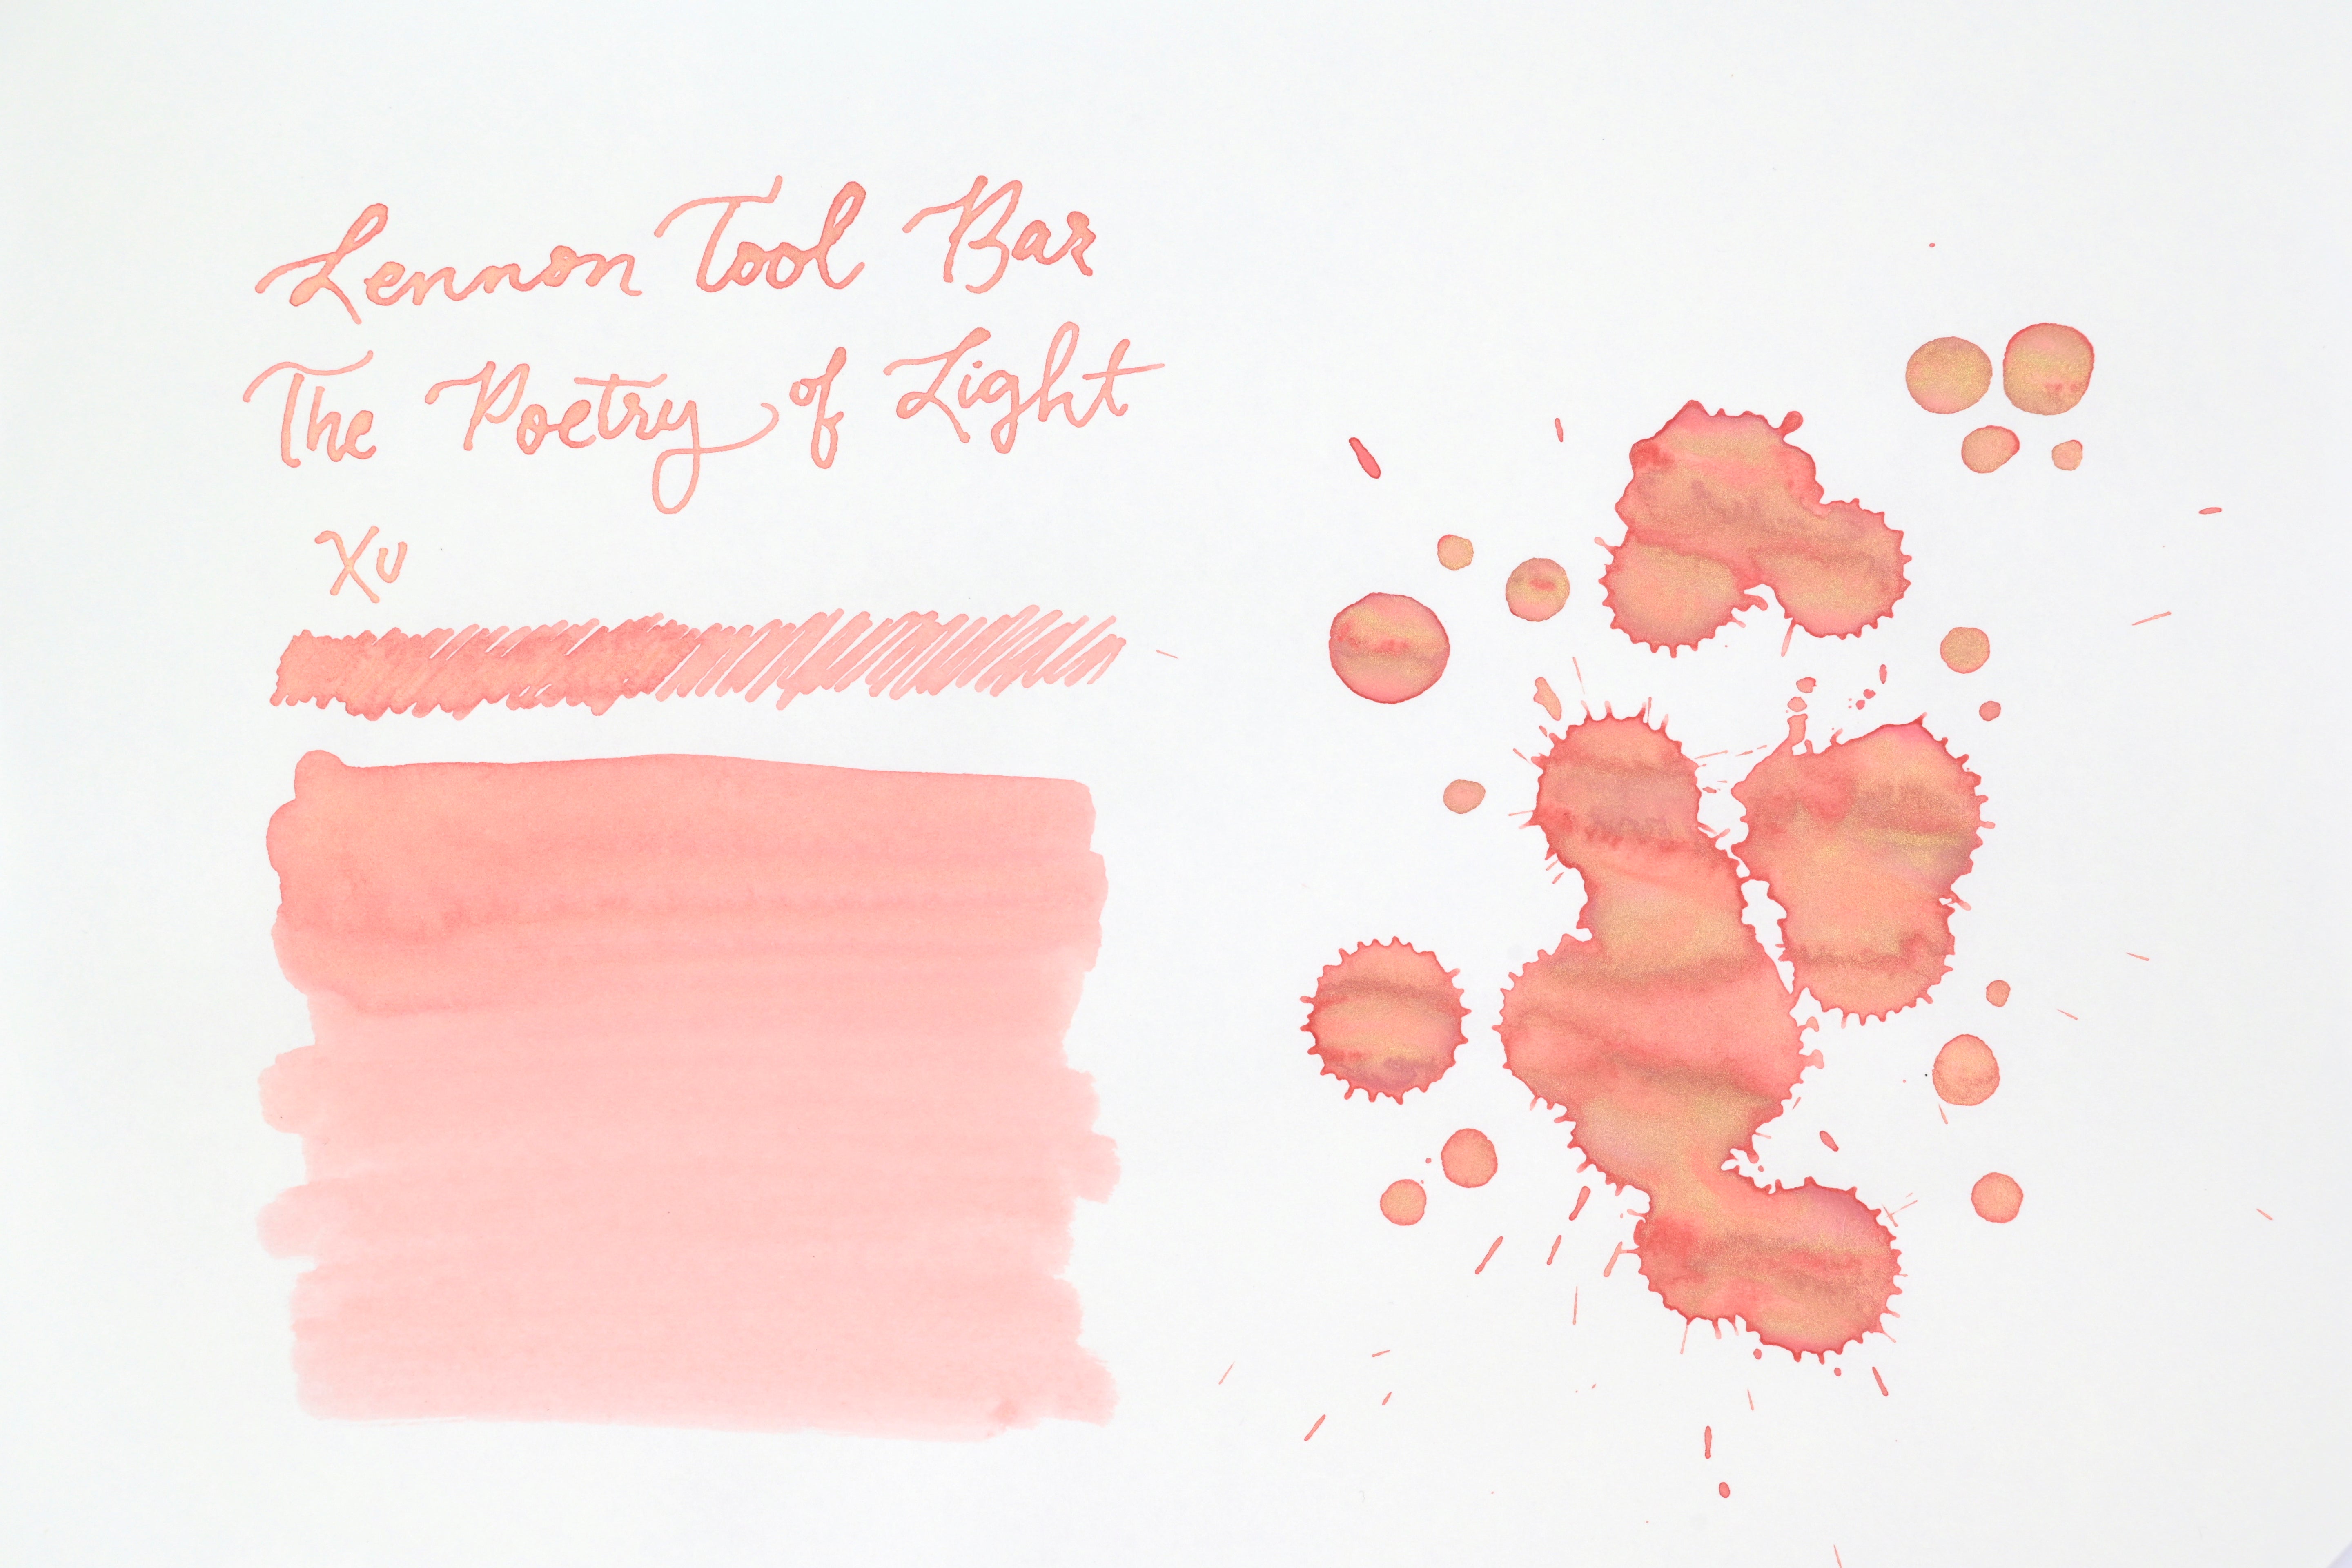 Lennon Tool Bar
The Poetry of Light
Xu